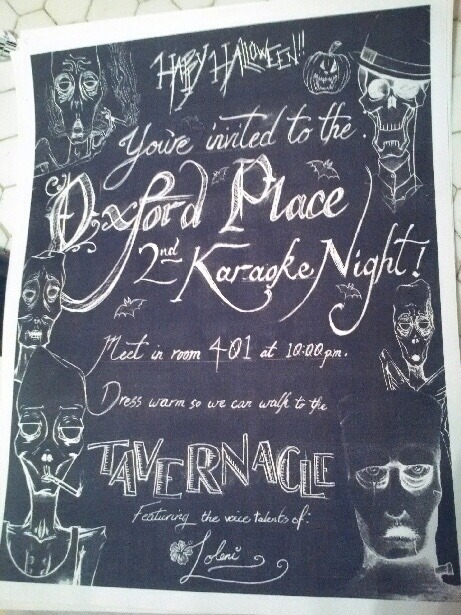 HAPPY HALLOWEEN!!
You're invited to the
Oxford Place
2nd Karaoke Night!
Meet in room 401 at 10:00pm.
Dress warm so we can walk to the
TAVERNACLE
Featuring the voice talents of:
Loleni